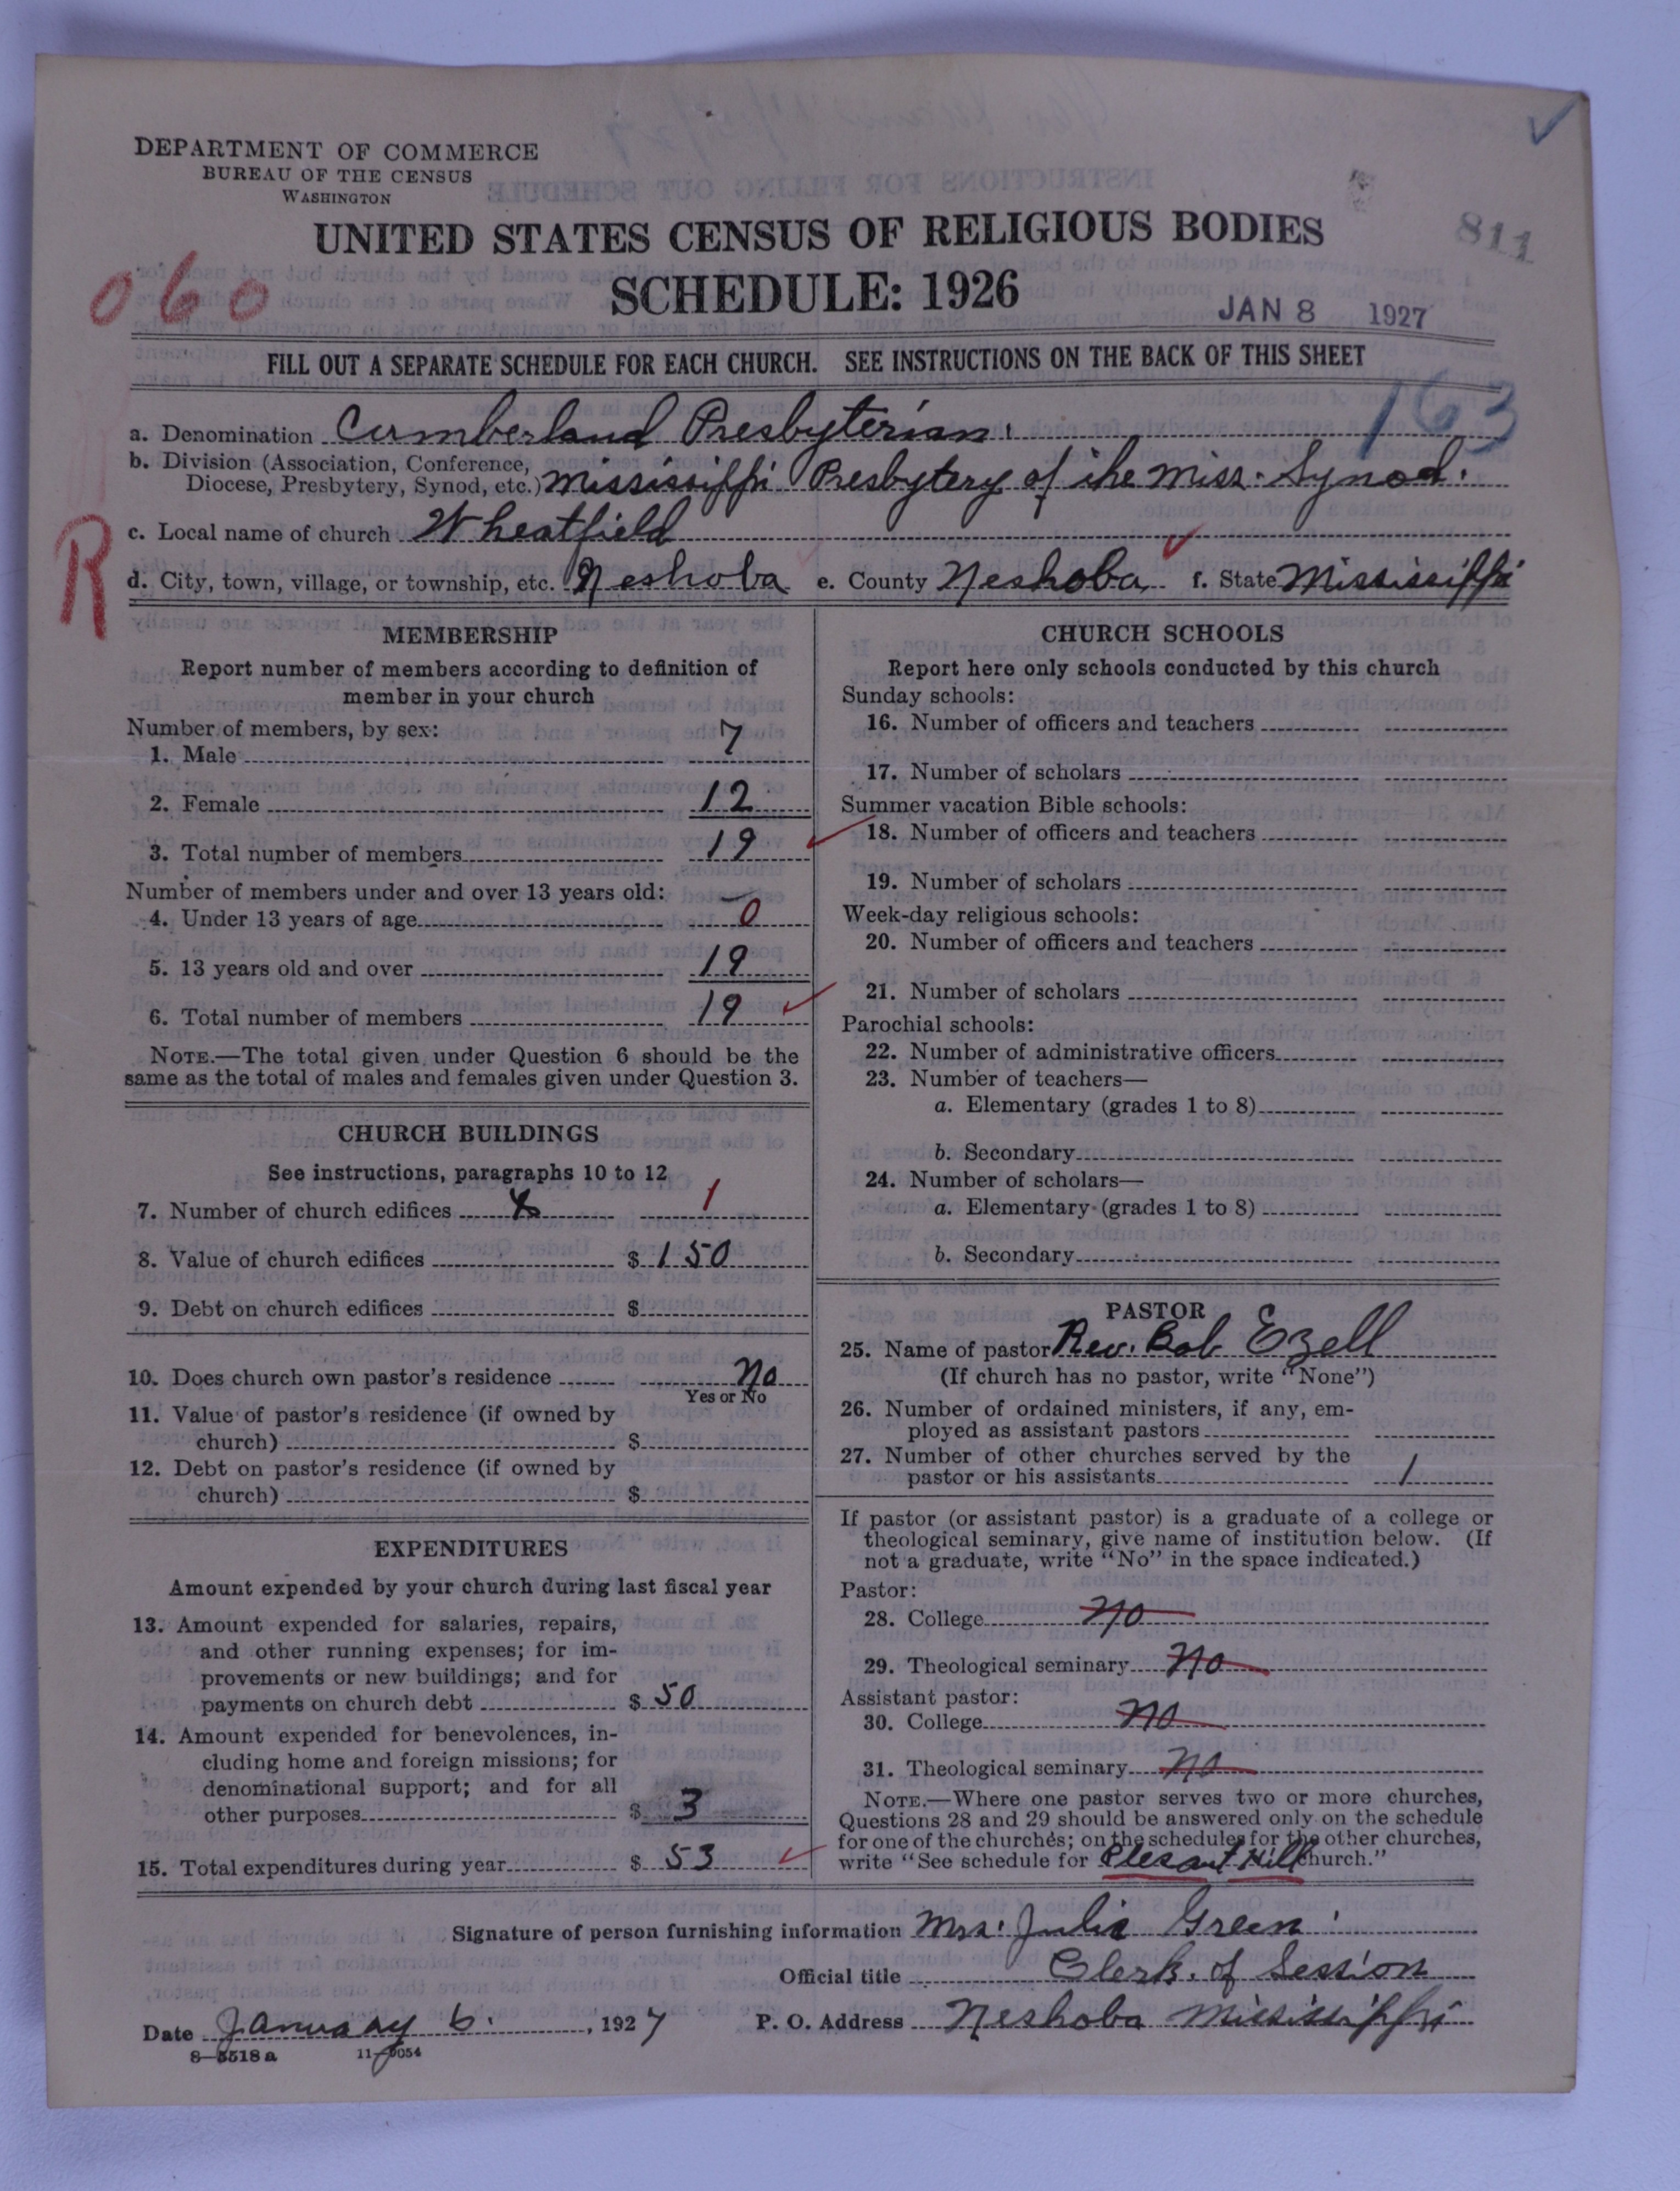 DEPARTMENT OF COMMERCE
BUREAU OF THE CENSUS
WASHINGTON
UNITED STATES CENSUS OF RELIGIOUS BODIES
811
060
SCHEDULE: 1926
JAN 8 1927
FILL OUT A SEPARATE SCHEDULE FOR EACH CHURCH. SEE INSTRUCTIONS ON THE BACK OF THIS SHEET
163
a. Denomination Cumberland Presbyterian.
b. Division (Association, Conference,
Diocese, Presbytery, Synod, etc.) Mississippi Presbytery of the Miss. Synod.
R
c. Local name of church Wheatfield
d. City, town, village, or township, etc. Neshoba e. County Neshoba f. State Mississippi
MEMBERSHIP
Report number of members according to definition of
member in your church
Number of members, by sex:
1. Male 7
2. Female 12
3. Total number of members 19
Number of members under and over 13 years old:
4. Under 13 years of age 0
5. 13 years old and over 19
6. Total number of members 19
NOTE.—The total given under Question 6 should be the
same as the total of males and females given under Question 3.
CHURCH BUILDINGS
See instructions, paragraphs 10 to 12
7. Number of church edifices 1
8. Value of church edifices $ 150
9. Debt on church edifices $
10. Does church own pastor's residence No
Yes or No
11. Value of pastor's residence (if owned by
church) $
12. Debt on pastor's residence (if owned by
church) $
EXPENDITURES
Amount expended by your church during last fiscal year
13. Amount expended for salaries, repairs,
and other running expenses; for im-
provements or new buildings; and for
payments on church debt $ 50
14. Amount expended for benevolences, in-
cluding home and foreign missions; for
denominational support; and for all
other purposes $ 3
15. Total expenditures during year $ 53
CHURCH SCHOOLS
Report here only schools conducted by this church
Sunday schools:
16. Number of officers and teachers
17. Number of scholars
Summer vacation Bible schools:
18. Number of officers and teachers
19. Number of scholars
Week-day religious schools:
20. Number of officers and teachers
21. Number of scholars
Parochial schools:
22. Number of administrative officers
23. Number of teachers—
a. Elementary (grades 1 to 8)
b. Secondary
24. Number of scholars—
a. Elementary (grades 1 to 8)
b. Secondary
PASTOR
25. Name of pastor Rev. Bob Ezell
(If church has no pastor, write "None")
26. Number of ordained ministers, if any, em-
ployed as assistant pastors
27. Number of other churches served by the
pastor or his assistants 1
If pastor (or assistant pastor) is a graduate of a college or
theological seminary, give name of institution below. (If
not a graduate, write "No" in the space indicated.)
Pastor:
28. College No
29. Theological seminary No
Assistant pastor:
30. College No
31. Theological seminary No
NOTE.—Where one pastor serves two or more churches,
Questions 28 and 29 should be answered only on the schedule
for one of the churches; on the schedules for the other churches,
write "See schedule for Plesant Hill church."
Signature of person furnishing information Mrs. Julia Green.
Official title Clerk. of Session
Date January 6. , 1927 P. O. Address Neshoba Mississippi
8—5518 a 11—9054